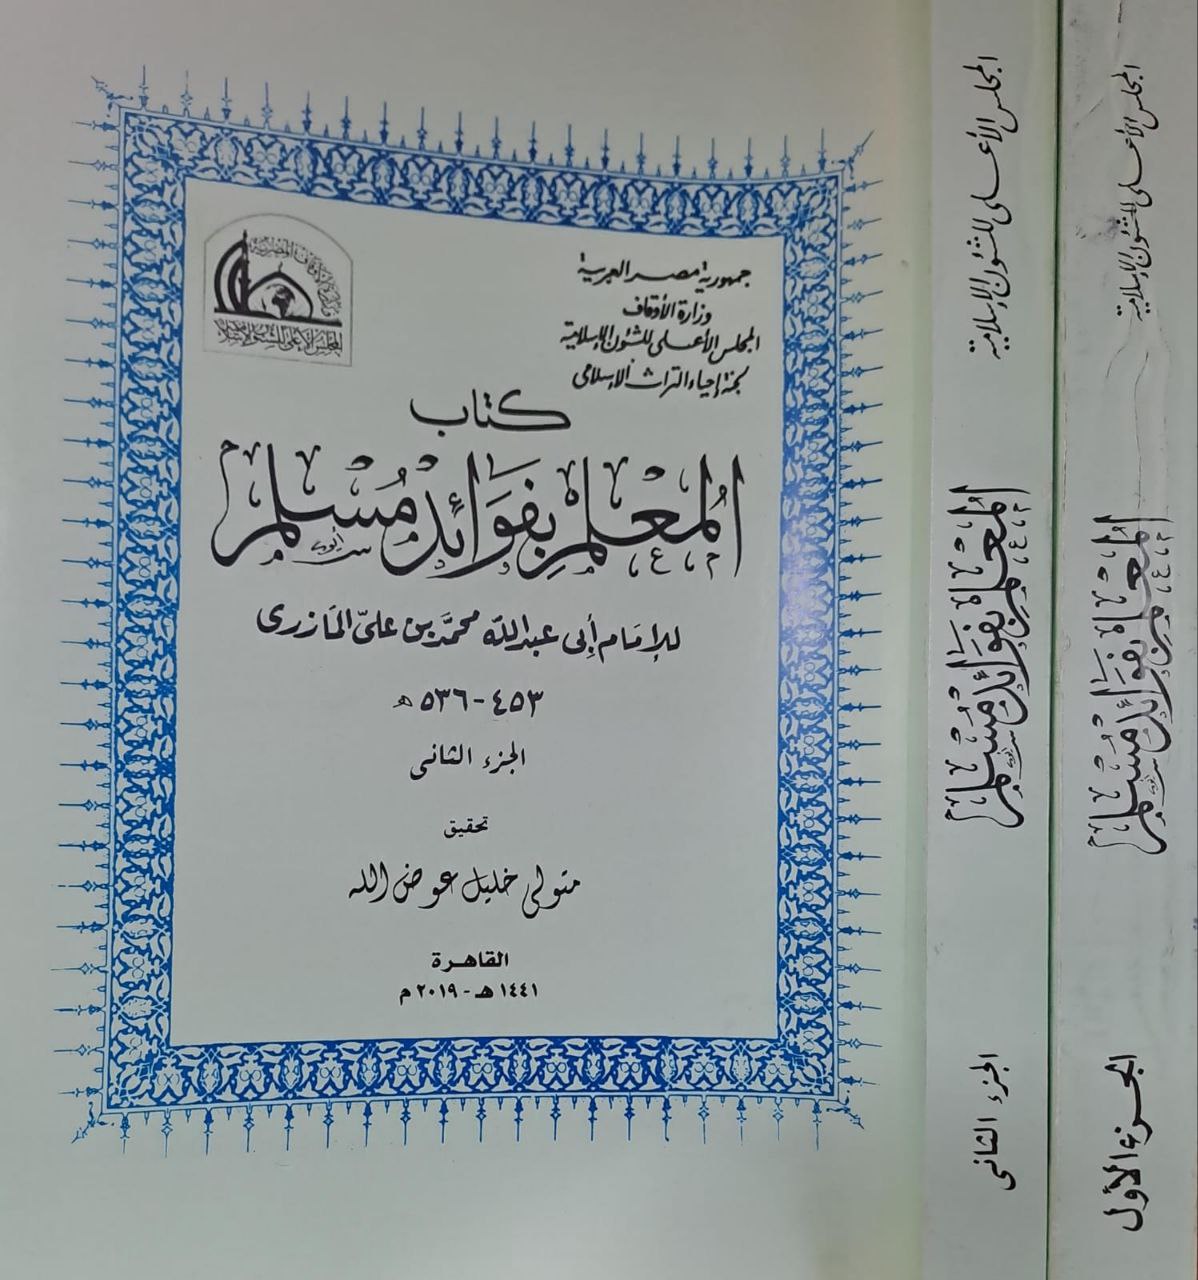 جمهورية مصر العربية
وزارة الأوقاف
المجلس الأعلى للشئون الإسلامية
لجنة إحياء التراث الإسلامى
وزارة الأوقاف المصرية
المجلس الأعلى للشئون الإسلامية
كتاب
المعلم بفوائد مسلم
للإمام أبى عبد الله محمد بن على المازرى
٤٥٣-٥٣٦ هـ
الجزء الثانى
تحقيق
متولى خليل عوض الله
القاهرة
١٤٤١ هـ - ٢٠١٩ م
المجلس الأعلى للشئون الإسلامية
المعلم بفوائد مسلم
الجزء الثانى
المجلس الأعلى للشئون الإسلامية
المعلم بفوائد مسلم
الجزء الأول